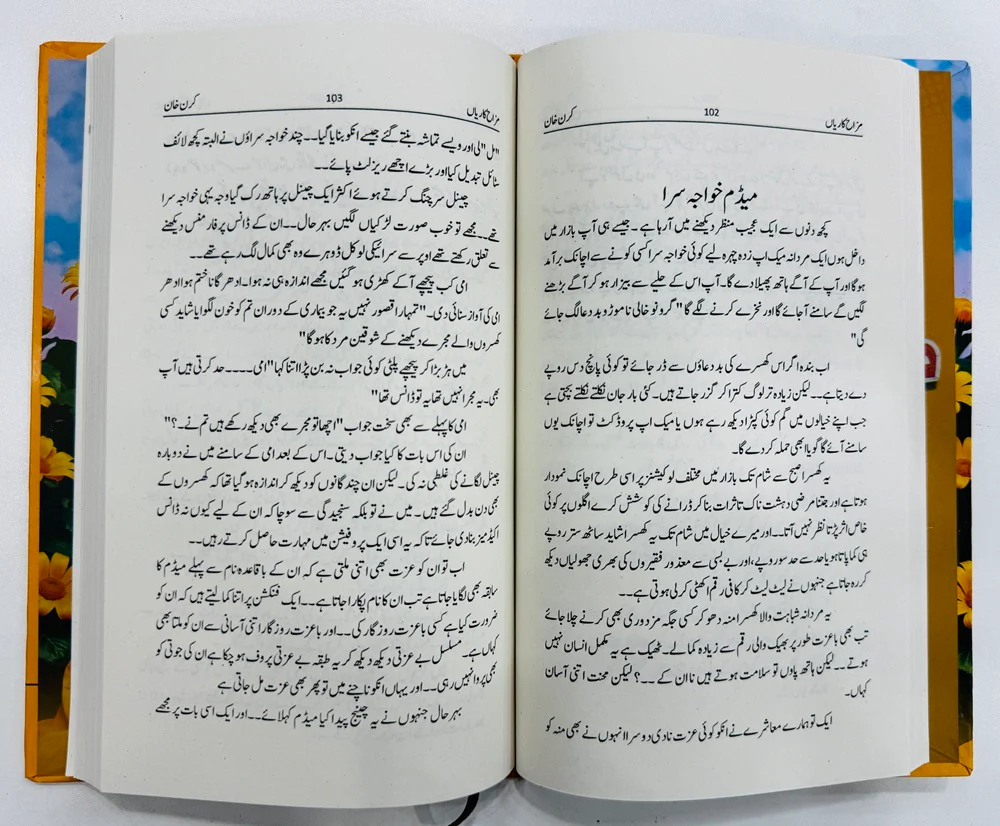 مزاح کاریاں 102 کرن خان
میڈم خواجہ سرا
کچھ دنوں سے ایک عجیب منظر دیکھنے میں آرہا ہے۔ جیسے ہی آپ بازار میں
داخل ہوں ایک مردانہ میک اپ زدہ چہرہ لیے کوئی خواجہ سرا کسی کونے سے اچانک برآمد
ہوگا اور آپ کے آگے ہاتھ پھیلا دے گا۔ آپ اس کے حلیے سے بیزار ہو کر آگے بڑھنے
لگیں گے سامنے آجائے گا اور نخرے کرنے لگے گا "گرو نو خالی نا موڑو بد دعا لگ جائے
گی"
اب بندہ اگر اس کھسرے کی بددعاؤں سے ڈر جائے تو کوئی پانچ دس روپے
دے دیتا ہے۔۔ لیکن زیادہ تر لوگ کترا کر گزر جاتے ہیں۔ کئی بار جان نکلتے نکلتے بچتی ہے
جب اپنے خیالوں میں گم کوئی کپڑا دیکھ رہے ہوں یا میک اپ پروڈکٹ تو اچانک یوں
سامنے آئے گا گویا ابھی حملہ کر دے گا۔
یہ کھسرا صبح سے شام تک بازار میں مختلف لوکیشنز پر اسی طرح اچانک نمودار
ہوتا ہے اور جتنا مرضی دہشت ناک تاثرات بنا کر ڈرانے کی کوشش کرے اگلوں پر کوئی
خاص اثر پڑتا نظر نہیں آتا۔۔ اور میرے خیال میں شام تک یہ کھسرا شاید ساٹھ ستر روپے
ہی کما پاتا ہو یا حد سے حد سو روپے، اور بے بسی سے معذور فقیروں کی بھری جھولیاں دیکھ
کر رہ جاتا ہے جنہوں نے لیٹ لیٹ کر کافی رقم اکھٹی کر لی ہوتی ہے۔۔
یہ مردانہ شباہت والا کھسرا منہ دھو کر کسی جگہ مزدوری بھی کرنے چلا جائے
تب بھی باعزت طور پر بھیک والی رقم سے زیادہ کما لے۔ ٹھیک ہے یہ مکمل انسان نہیں
ہوتے۔۔ لیکن ہاتھ پاوں تو سلامت ہوتے ہیں نا ان کے ۔۔؟ لیکن محنت اتنی آسان
کہاں۔
ایک تو ہمارے معاشرے نے انکو کوئی عزت نادی دوسرا انہوں نے بھی منہ کو
مزاح کاریاں 103 کرن خان
"مل" لی اور ویسے تماشہ بنتے گئے جیسے انکو بنایا گیا۔۔ چند خواجہ سراؤں نے البتہ کچھ لائف
سٹائل تبدیل کیا اور بڑے اچھے ریزلٹ پائے۔۔
چینل سرچنگ کرتے ہوئے اکثر ایک چینل پر ہاتھ رک گیا وجہ یہی خواجہ سرا
تھے۔۔ مجھے تو خوب صورت لڑکیاں لگیں بہرحال۔۔ ان کے ڈانس پرفارمنس دیکھنے
سے تعلق رکھتے تھے اوپر سے سرائیکی لوکل ڈوہرے وہ بھی کمال لگ رہے تھے۔۔
امی کب پیچھے آکے کھڑی ہو گئیں مجھے اندازہ ہی نہ ہوا۔ ادھر گانا ختم ہوا ادھر
امی کی آواز سنائی دی۔ "تمہارا قصور نہیں یہ جو بیماری کے دوران تم کو خون لگوایا شاید کسی
کھسروں والے مجرے دیکھنے کے شوقین مرد کا ہوگا"
میں ہڑبڑا کر پیچھے پلٹی کوئی جواب نہ بن پڑا اتنا کہا "امی۔۔۔۔ حد کرتی ہیں آپ
بھی۔ یہ مجرا نہیں تھا یہ تو ڈانس تھا"
امی کا پہلے سے بھی سخت جواب "اچھا تو مجرے بھی دیکھ رکھے ہیں تم نے۔؟"
ان کی اس بات کا کیا جواب دیتی۔ اس کے بعد امی کے سامنے میں نے دوبارہ
چینل لگانے کی غلطی نہ کی۔ لیکن ان چند گانوں کو دیکھ کر اندازہ ہو گیا تھا کہ کھسروں کے
بھی دن بدل گئے ہیں۔ میں نے تو بلکہ سنجیدگی سے سوچا کہ ان کے لیے کیوں نہ ڈانس
اکیڈمیز بنادی جائے تاکہ یہ اسی ایک پروفیشن میں مہارت حاصل کرتے رہیں۔۔
اب تو ان کو عزت بھی اتنی ملتی ہے کہ ان کے باقاعدہ نام سے پہلے میڈم کا
سابقہ بھی لگایا جاتا ہے تب ان کا نام پکارا جاتا ہے۔۔ ایک فنکشن پر اتنا کما لیتے ہیں کہ ان کو
ضرورت کیا ہے کسی باعزت روزگار کی۔۔ اور باعزت روزگار اتنی آسانی سے ان کو ملتا بھی
کہاں ہے۔ مسلسل بے عزتی دیکھ دیکھ کر یہ طبقہ بے عزتی پروف ہو چکا ہے ان کی جوتی کو
بھی پروا نہیں رہی۔۔ اور یہاں انکو ناچنے میں تو پھر بھی عزت مل جاتی ہے
بہرحال جنہوں نے یہ چینج پیدا کیا میڈم کہلائے۔۔ اور ایک اسی بات پر مجھے